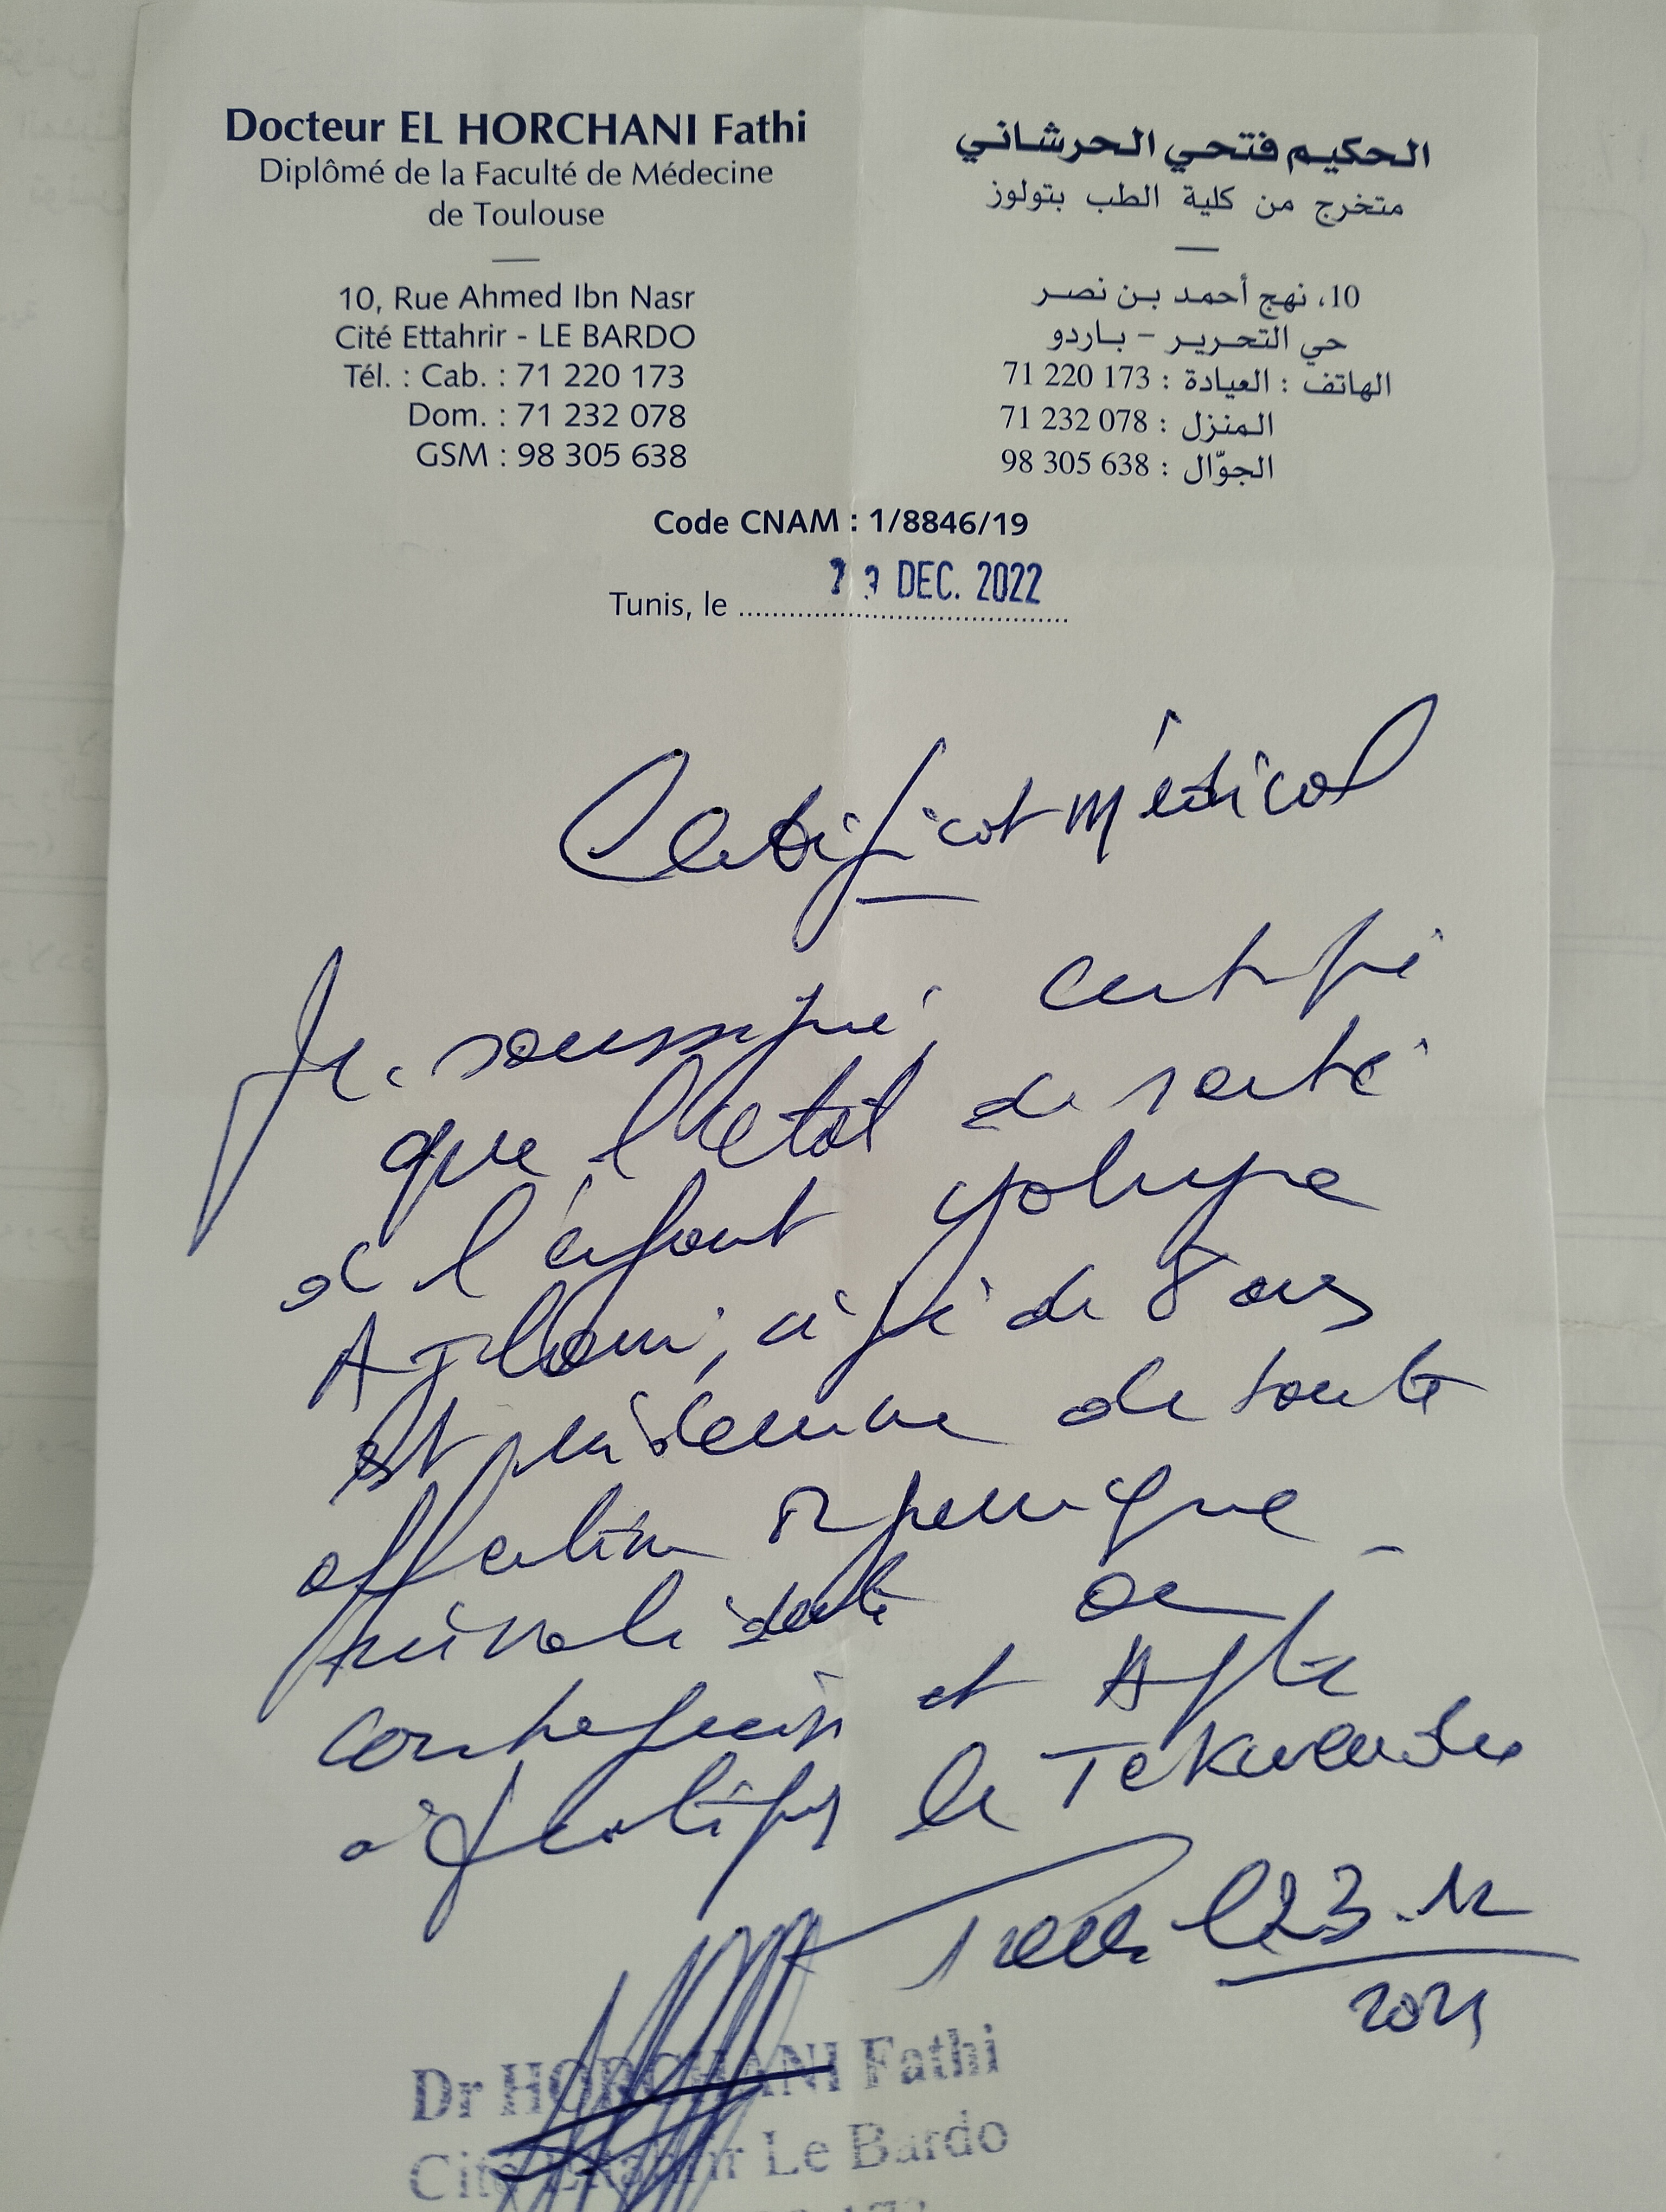 Docteur EL HORCHANI Fathi
Diplômé de la Faculté de Médecine
de Toulouse
10, Rue Ahmed Ibn Nasr
Cité Ettahrir - LE BARDO
Tél. : Cab. : 71 220 173
Dom. : 71 232 078
GSM : 98 305 638
الحكيم فتحي الحرشاني
متخرج من كلية الطب بتولوز
10، نهج أحمد بن نصر
حي التحرير - باردو
الهاتف : العيادة : 173 220 71
المنزل : 078 232 71
الجوّال : 638 305 98
Code CNAM : 1/8846/19
Tunis, le DEC. 2022
Certificat Médical
Je soussigné, certifie
que l'état de santé
de l'enfant
âgé de 8 ans
est indemne de toute
affection organique
ou
contagieuse et Apte
à pratiquer le Tekwendo
le 23.12
Dr HORCHANI Fathi
Cité Ettahrir Le Bardo